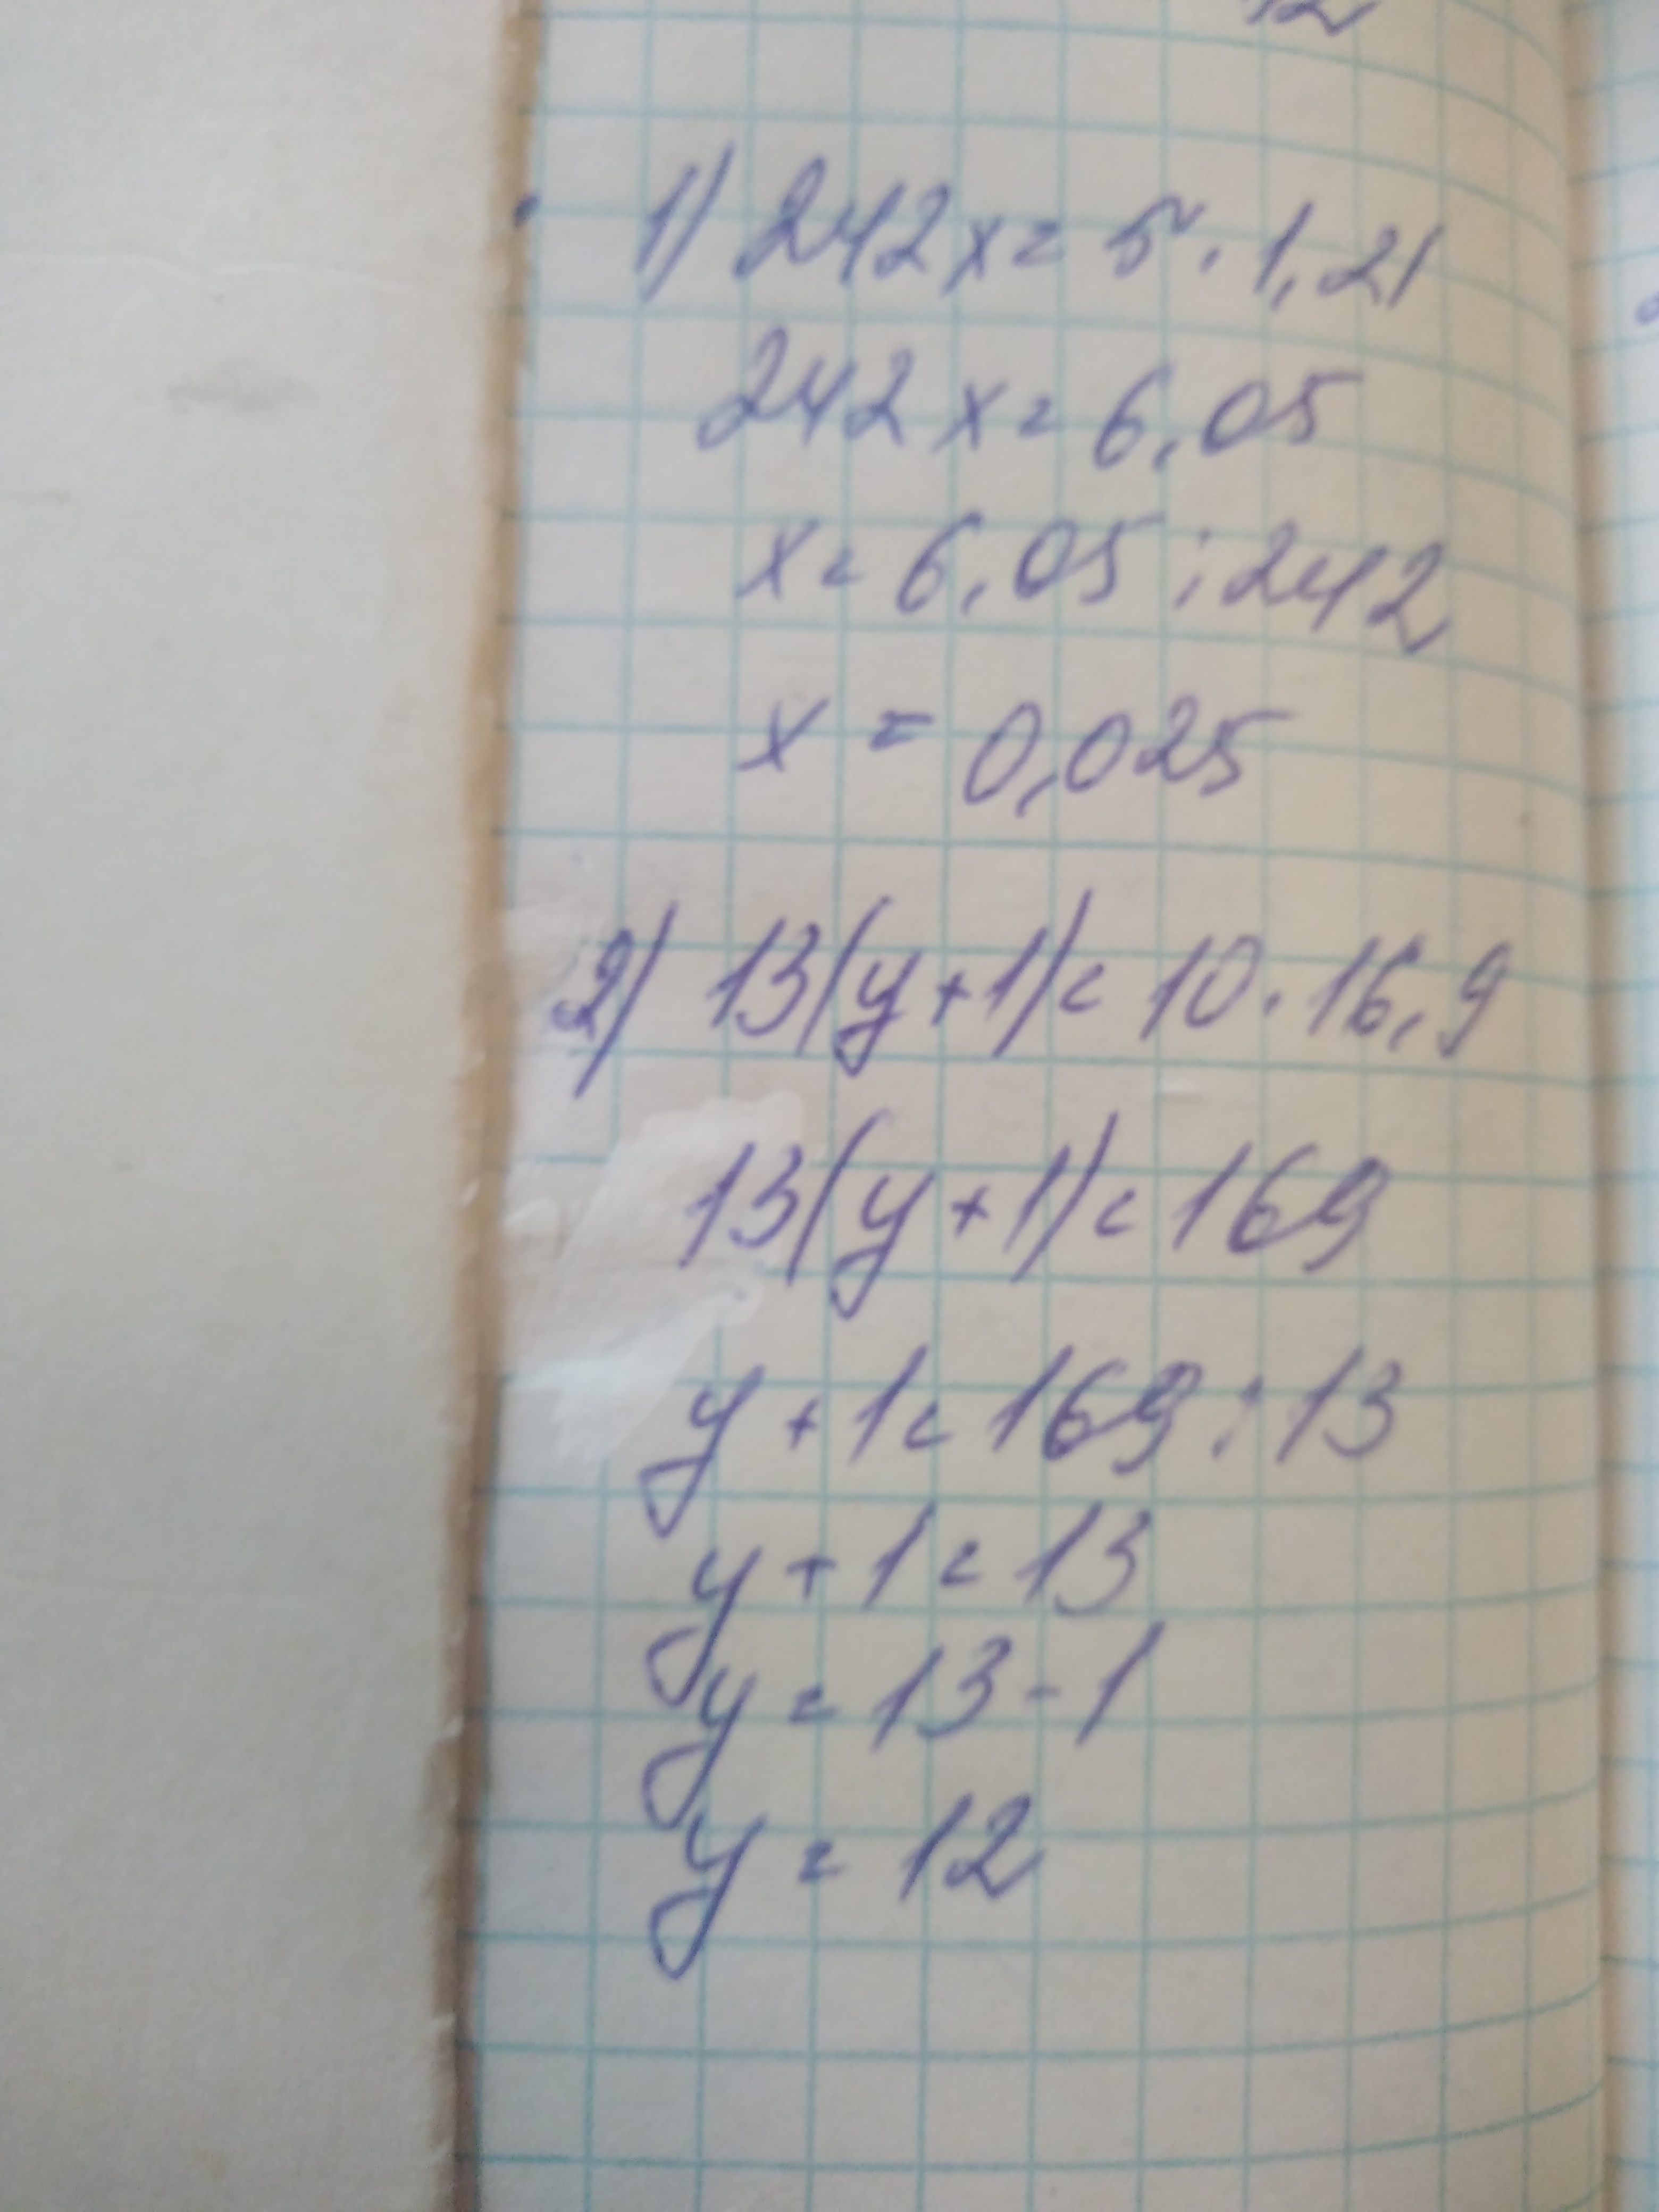 12
1) 242x = 5 · 1,21
242x = 6,05
x = 6,05 : 242
x = 0,025
2) 13(y+1) = 10 · 16,9
13(y+1) = 169
y + 1 = 169 : 13
y + 1 = 13
y = 13 - 1
y = 12